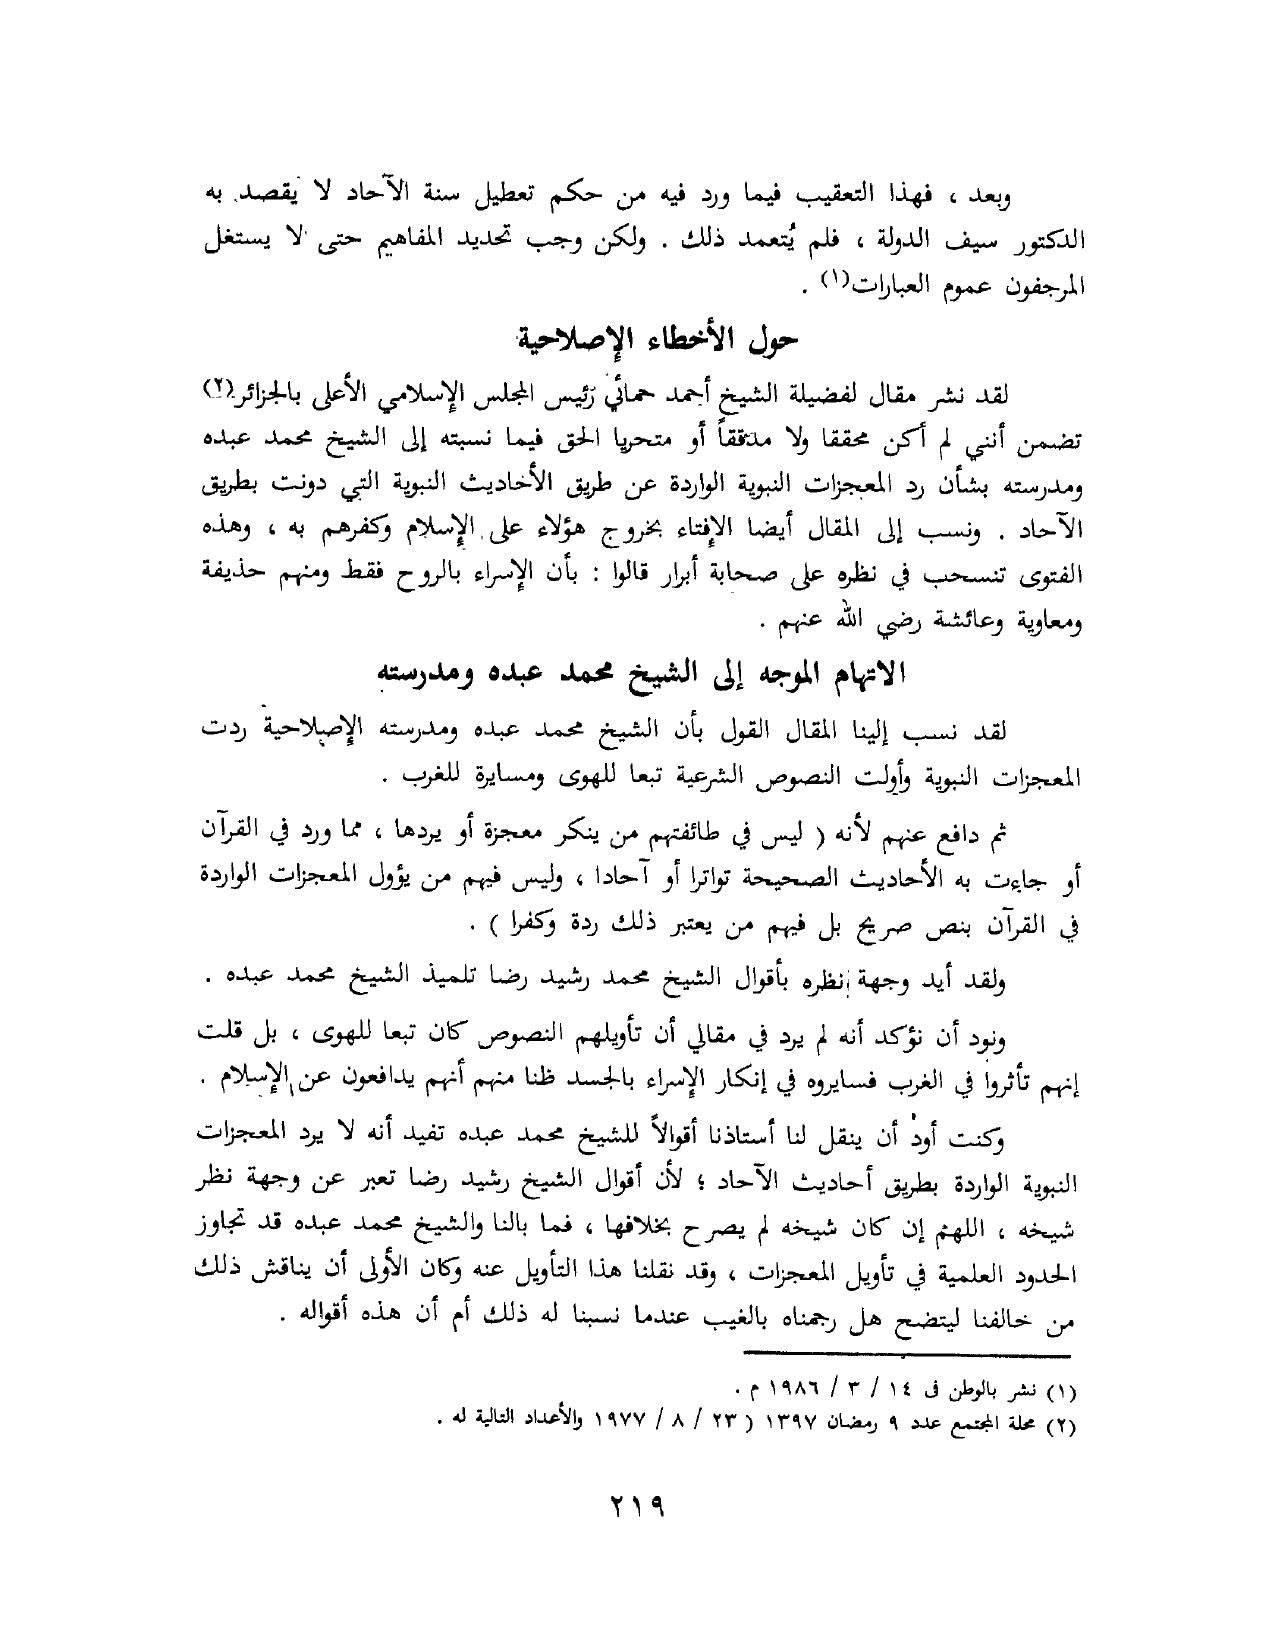 وبعد ، فهذا التعقيب فيما ورد فيه من حكم تعطيل سنة الآحاد لا يقصد به
الدكتور سيف الدولة ، فلم يُتعمد ذلك . ولكن وجب تحديد المفاهيم حتى لا يستغل
المرجفون عموم العبارات(١) .
حول الأخطاء الإصلاحية
لقد نشر مقال لفضيلة الشيخ أحمد حماني رئيس المجلس الإسلامي الأعلى بالجزائر(٢)
تضمن أنني لم أكن محققا ولا مدققاً أو متحريا الحق فيما نسبته إلى الشيخ محمد عبده
ومدرسته بشأن رد المعجزات النبوية الواردة عن طريق الأحاديث النبوية التي دونت بطريق
الآحاد . ونسب إلى المقال أيضا الإفتاء بخروج هؤلاء على الإسلام وكفرهم به ، وهذه
الفتوى تنسحب في نظره على صحابة أبرار قالوا : بأن الإسراء بالروح فقط ومنهم حذيفة
ومعاوية وعائشة رضي الله عنهم .
الاتهام الموجه إلى الشيخ محمد عبده ومدرسته
لقد نسب إلينا المقال القول بأن الشيخ محمد عبده ومدرسته الإصلاحية ردت
المعجزات النبوية وأولت النصوص الشرعية تبعا للهوى ومسايرة للغرب .
ثم دافع عنهم لأنه ( ليس في طائفتهم من ينكر معجزة أو يردها ، مما ورد في القرآن
أو جاءت به الأحاديث الصحيحة تواترا أو آحادا ، وليس فيهم من يؤول المعجزات الواردة
في القرآن بنص صريح بل فيهم من يعتبر ذلك ردة وكفرا ) .
ولقد أيد وجهة نظره بأقوال الشيخ محمد رشيد رضا تلميذ الشيخ محمد عبده .
ونود أن نؤكد أنه لم يرد في مقالي أن تأويلهم النصوص كان تبعا للهوى ، بل قلت
إنهم تأثروا في الغرب فسايروه في إنكار الإسراء بالجسد ظنا منهم أنهم يدافعون عن الإسلام .
وكنت أود أن ينقل لنا أستاذنا أقوالاً للشيخ محمد عبده تفيد أنه لا يرد المعجزات
النبوية الواردة بطريق أحاديث الآحاد ؛ لأن أقوال الشيخ رشيد رضا تعبر عن وجهة نظر
شيخه ، اللهم إن كان شيخه لم يصرح بخلافها ، فما بالنا والشيخ محمد عبده قد تجاوز
الحدود العلمية في تأويل المعجزات ، وقد نقلنا هذا التأويل عنه وكان الأولى أن يناقش ذلك
من خالفنا ليتضح هل رجمناه بالغيب عندما نسبنا له ذلك أم أن هذه أقواله .
(١) نشر بالوطن فى ١٤ / ٣ / ١٩٨٦ م .
(٢) مجلة المجتمع عدد ٩ رمضان ١٣٩٧ ( ٢٣ / ٨ / ١٩٧٧ والأعداد التالية له .
٢١٩